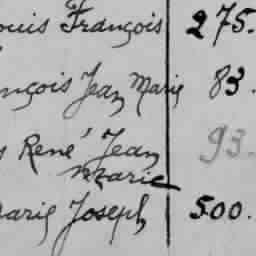 ouis François 275.
nçois Jean Marie 83.
s René Jean 93.
Marie
arie Joseph 500.